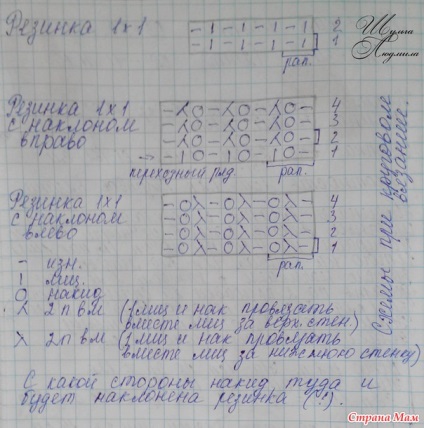 Резинка 1х1
- 1 - 1 - 1 - 1 - 2
- 1 - 1 - 1 - 1 - 1
рап.
Шульга
Людмила
Резинка 1х1
с наклоном
вправо
4
3
2
1
переходный ряд
рап.
Резинка 1х1
с наклоном
влево
4
3
2
1
рап.
Схемы при круговом
вязании.
- изн.
1 лиц.
О накид
⅄ 2 п вм (1 лиц и нак провязать
вместе лиц за верх. стен.)
λ 2 п вм (1 лиц и нак провязать
вместе лиц за нижнюю стенку)
С какой стороны накид, туда и
будет наклонена резинка (!).
Страна Мам